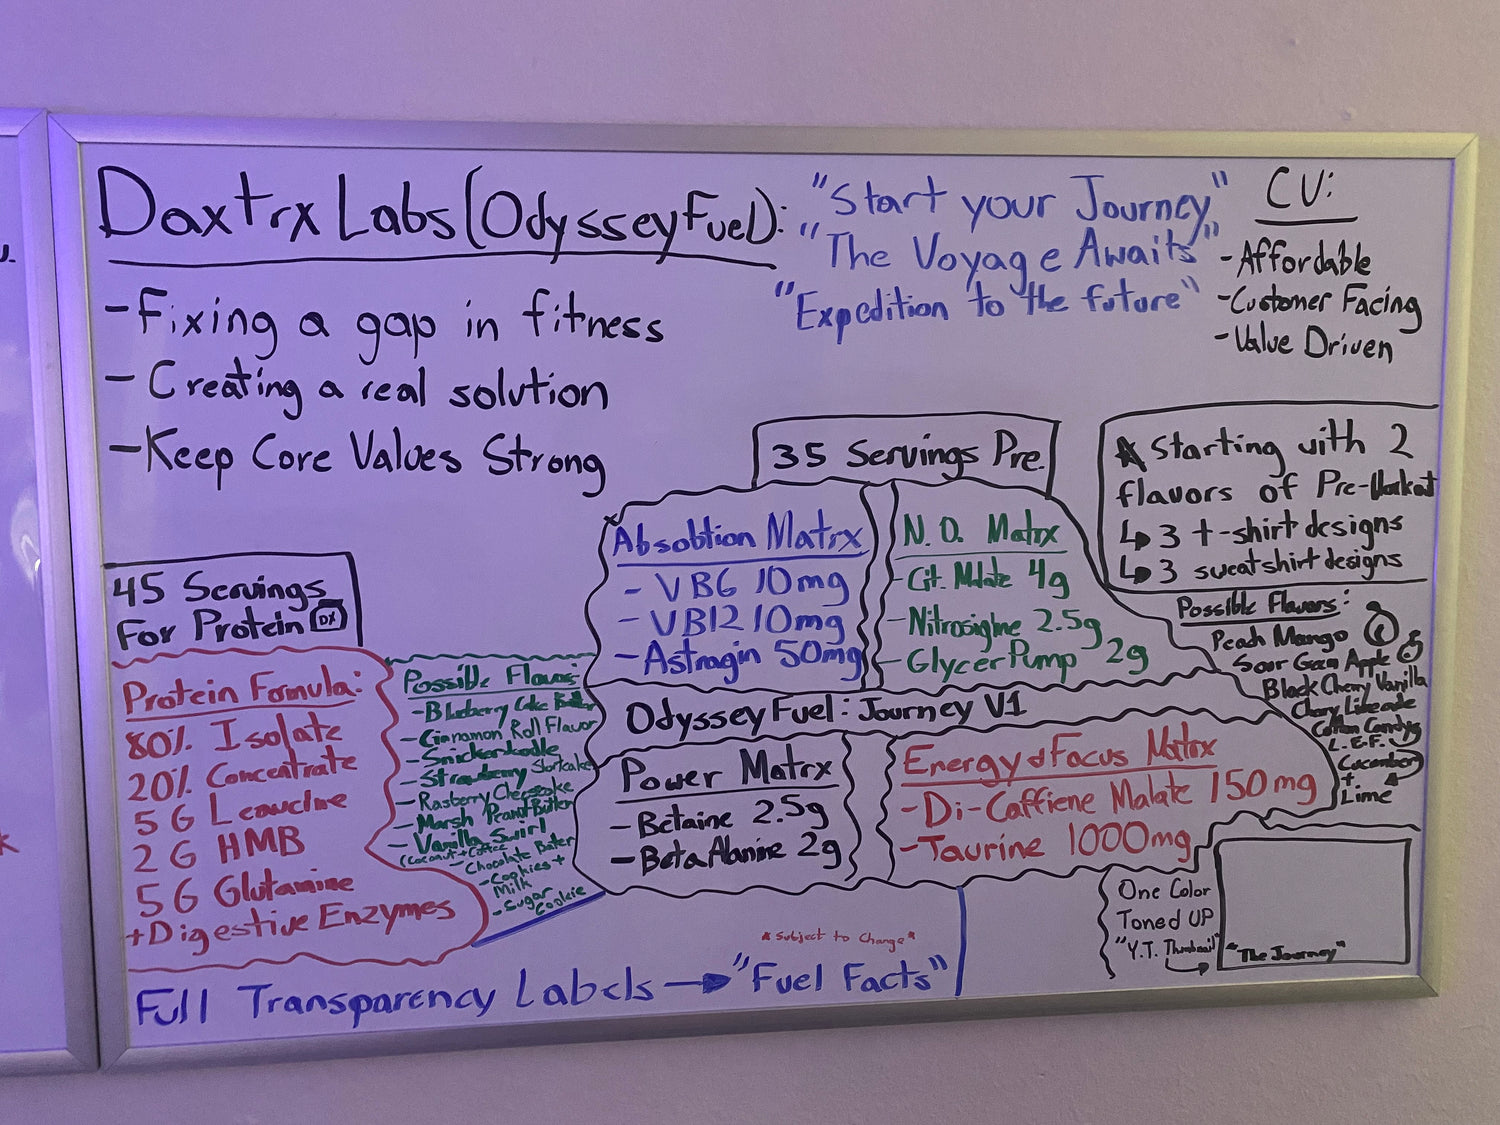 Daxtrx Labs (OdysseyFuel):
- Fixing a gap in fitness
- Creating a real solution
- Keep Core Values Strong
"Start your Journey"
"The Voyage Awaits"
"Expedition to the future"
CV:
- Affordable
- Customer Facing
- Value Driven
35 Servings Pre.
Starting with 2
flavors of Pre-Workout
↳ 3 t-shirt designs
↳ 3 sweatshirt designs
45 Servings
For Protein DX
Protein Formula:
80% Isolate
20% Concentrate
5 G Leucine
2 G HMB
5 G Glutamine
+Digestive Enzymes
Possible Flavors:
- Blueberry Cake Batter
- Cinnamon Roll Flavor
- Snickerdoodle
- Strawberry Shortcake
- Rasberry Cheesecake
- Marsh Peanut Butter
- Vanilla Swirl
(Coconut + Coffee)
- Chocolate Butter
- Cookies +
Milk
- Sugar
Cookie
Absobtion Matrx
- VB6 10mg
- VB12 10mg
- Astragin 50mg
N.O. Matrx
- Cit. Malate 4g
- Nitrosigine 2.5g
- GlycerPump 2g
OdysseyFuel: Journey V1
Power Matrx
- Betaine 2.5g
- Beta Alanine 2g
Energy & Focus Matrx
- Di-Caffiene Malate 150mg
- Taurine 1000mg
Possible Flavors:
Peach Mango
Sour Green Apple
Black Cherry Vanilla
Cherry Limeade
Cotton Candy
L.E.F.
Cucumber
+
Lime
One Color
Toned UP
"Y.T. Thumbnail"
"The Journey"
*Subject to Change*
Full Transparency Labels → "Fuel Facts"